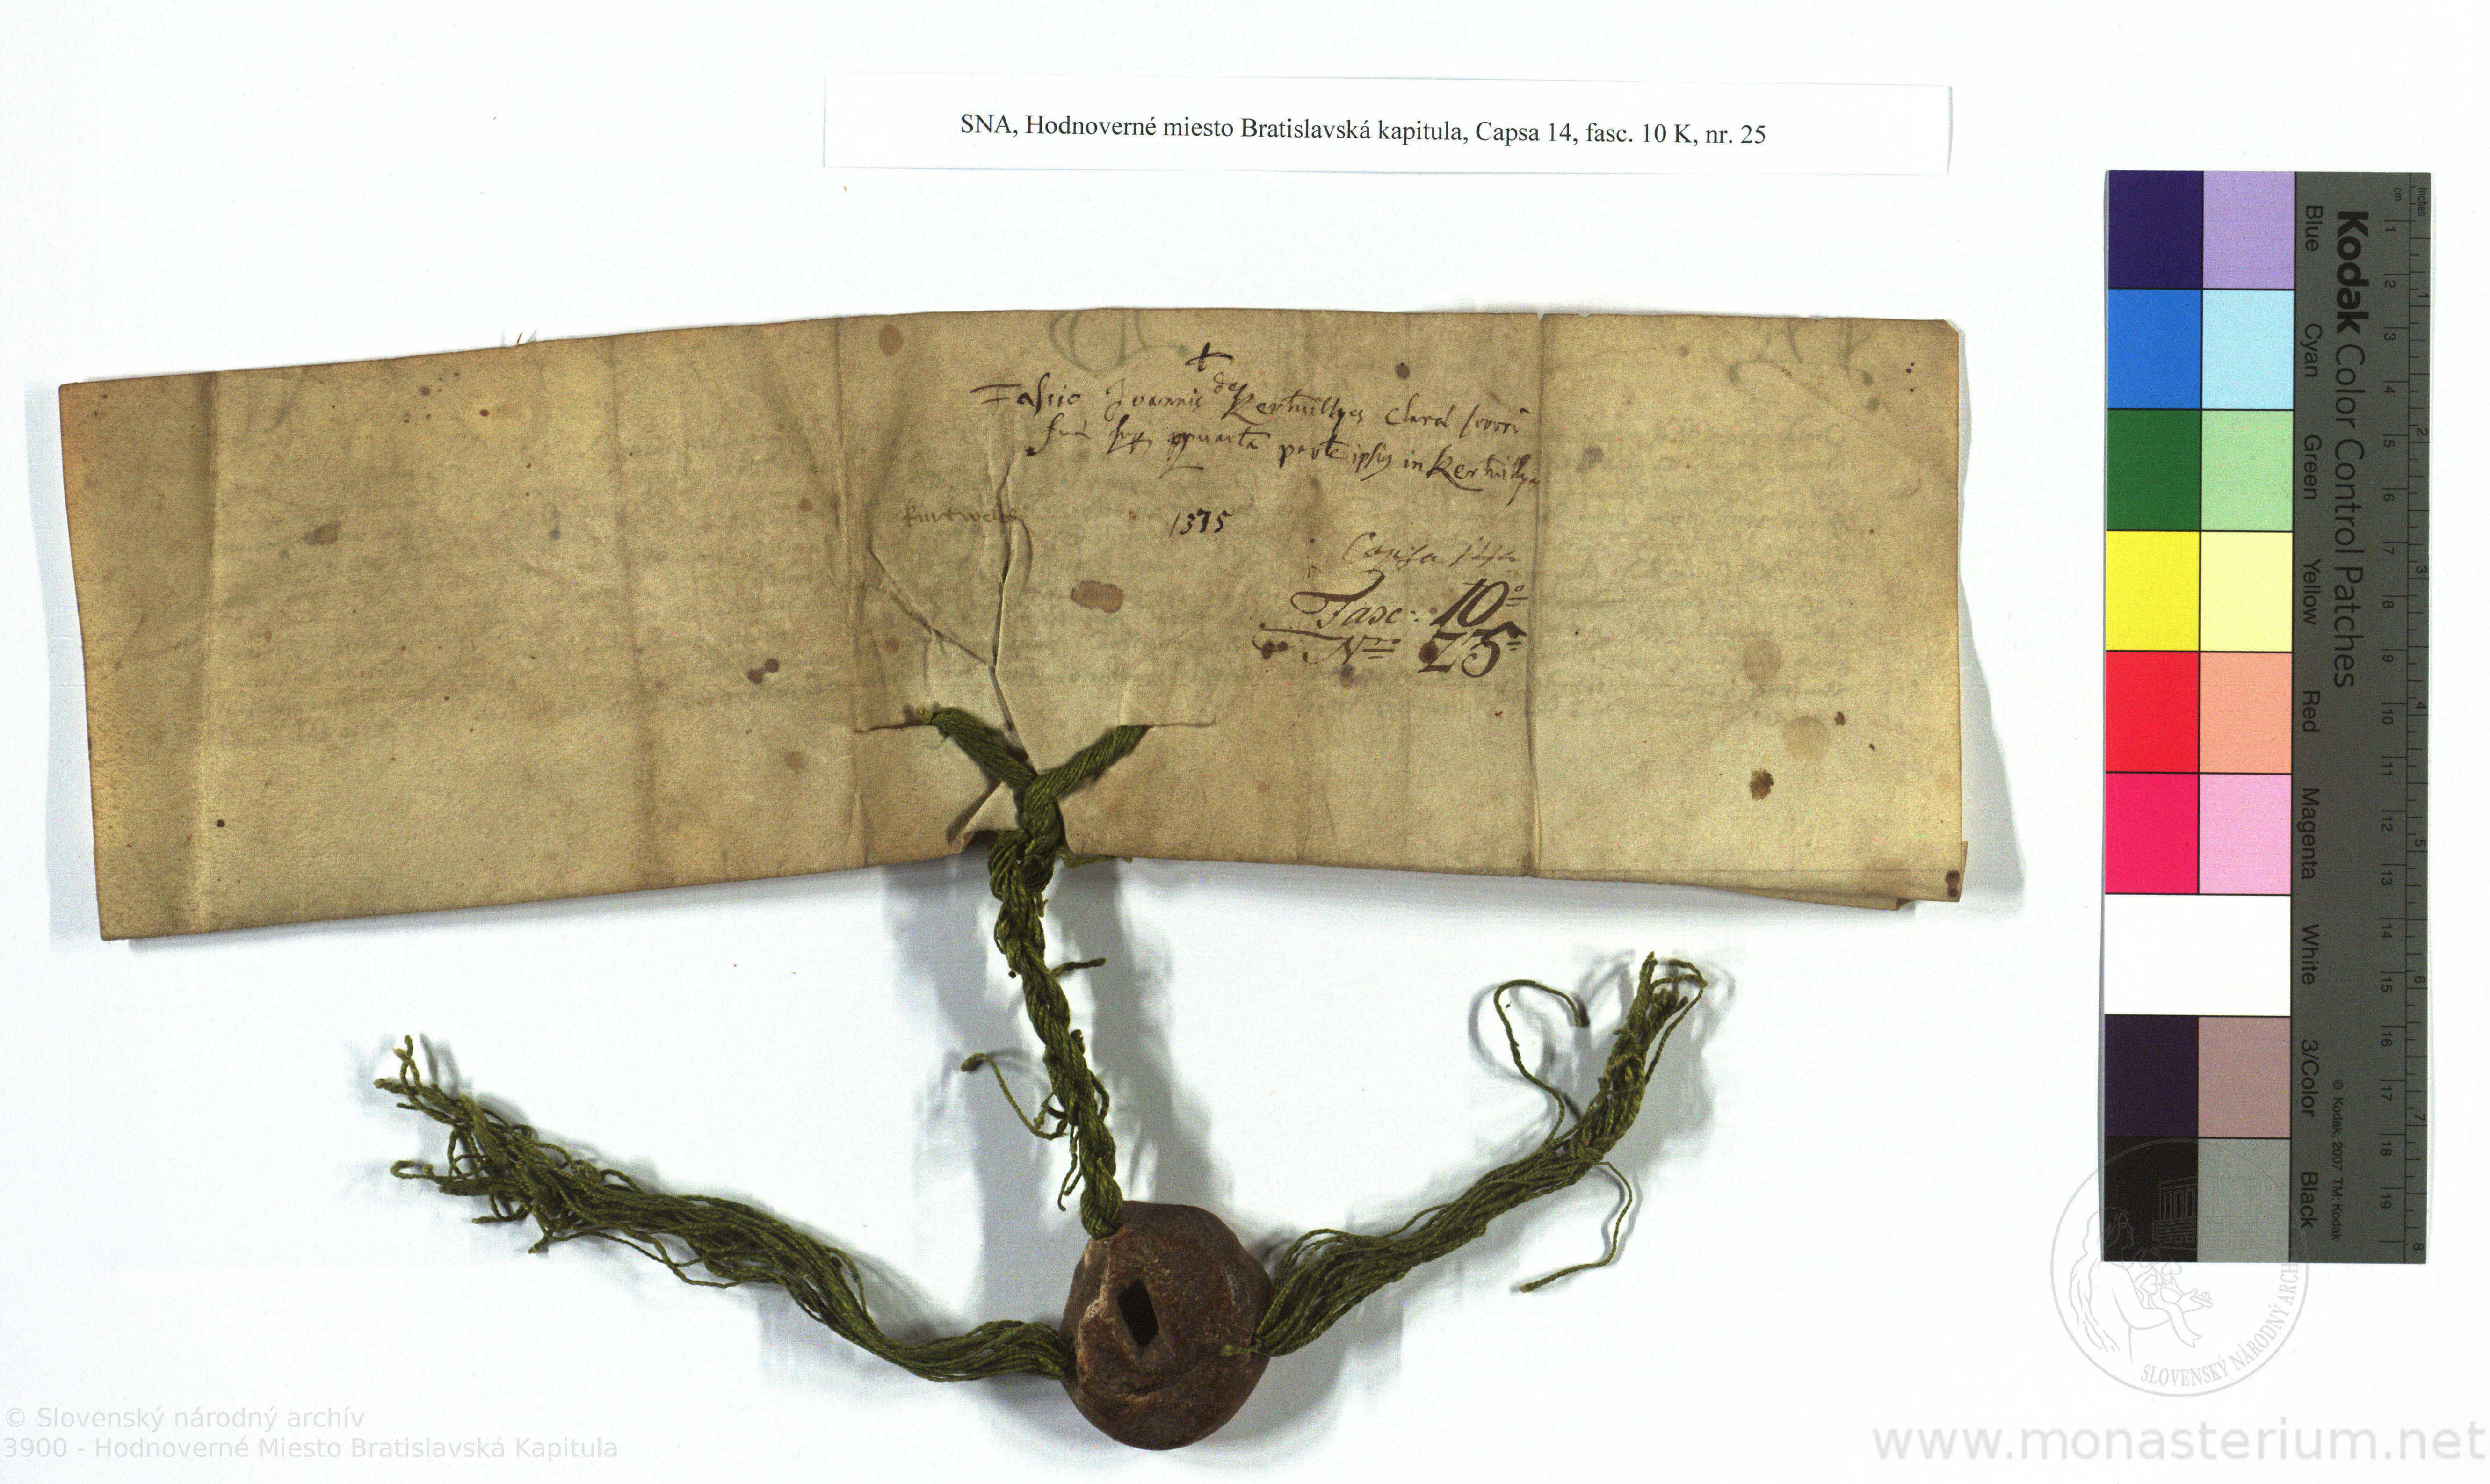 SNA, Hodnoverné miesto Bratislavská kapitula, Capsa 14, fasc. 10 K, nr. 25
Fassio Joannis de Kerthuellyes
quarta parte in
1375
Capsa
Fasc: 10º
Nrº 25
Kodak Color Control Patches
Blue Cyan Green Yellow Red Magenta White 3/Color Black
© Kodak, 2007 TM: Kodak
inches 1 2 3 4 5 6 7 8
cm 1 2 3 4 5 6 7 8 9 10 11 12 13 14 15 16 17 18 19
SLOVENSKÝ NÁRODNÝ ARCH
© Slovenský národný archív
3900 - Hodnoverné Miesto Bratislavská Kapitula
www.monasterium.net